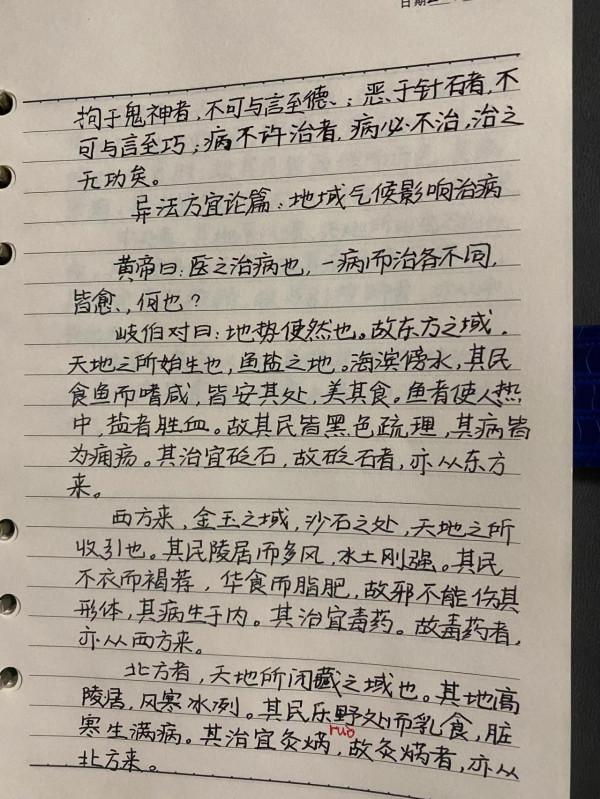 日期
拘于鬼神者，不可与言至德、；恶于针石者，不
可与言至巧；病不许治者，病必不治，治之
无功矣。
异法方宜论篇：地域气候影响治病
黄帝曰：医之治病也，一病而治各不同，
皆愈、，何也？
岐伯对曰：地势使然也。故东方之域，
天地之所始生也，鱼盐之地。海滨傍水，其民
食鱼而嗜咸，皆安其处，美其食。鱼者使人热
中，盐者胜血。故其民皆黑色疏理，其病皆
为痈疡。其治宜砭石，故砭石者，亦从东方
来。
西方来，金玉之域，沙石之处，天地之所
收引也。其民陵居而多风，水土刚强。其民
不衣而褐荐，华食而脂肥，故邪不能伤其
形体，其病生于内。其治宜毒药。故毒药者，
亦从西方来。
北方者，天地所闭藏之域也。其地高
陵居，风寒冰冽。其民乐野处而乳食，脏
寒生满病。其治宜灸焫，故灸焫者，亦从
ruo
北方来。